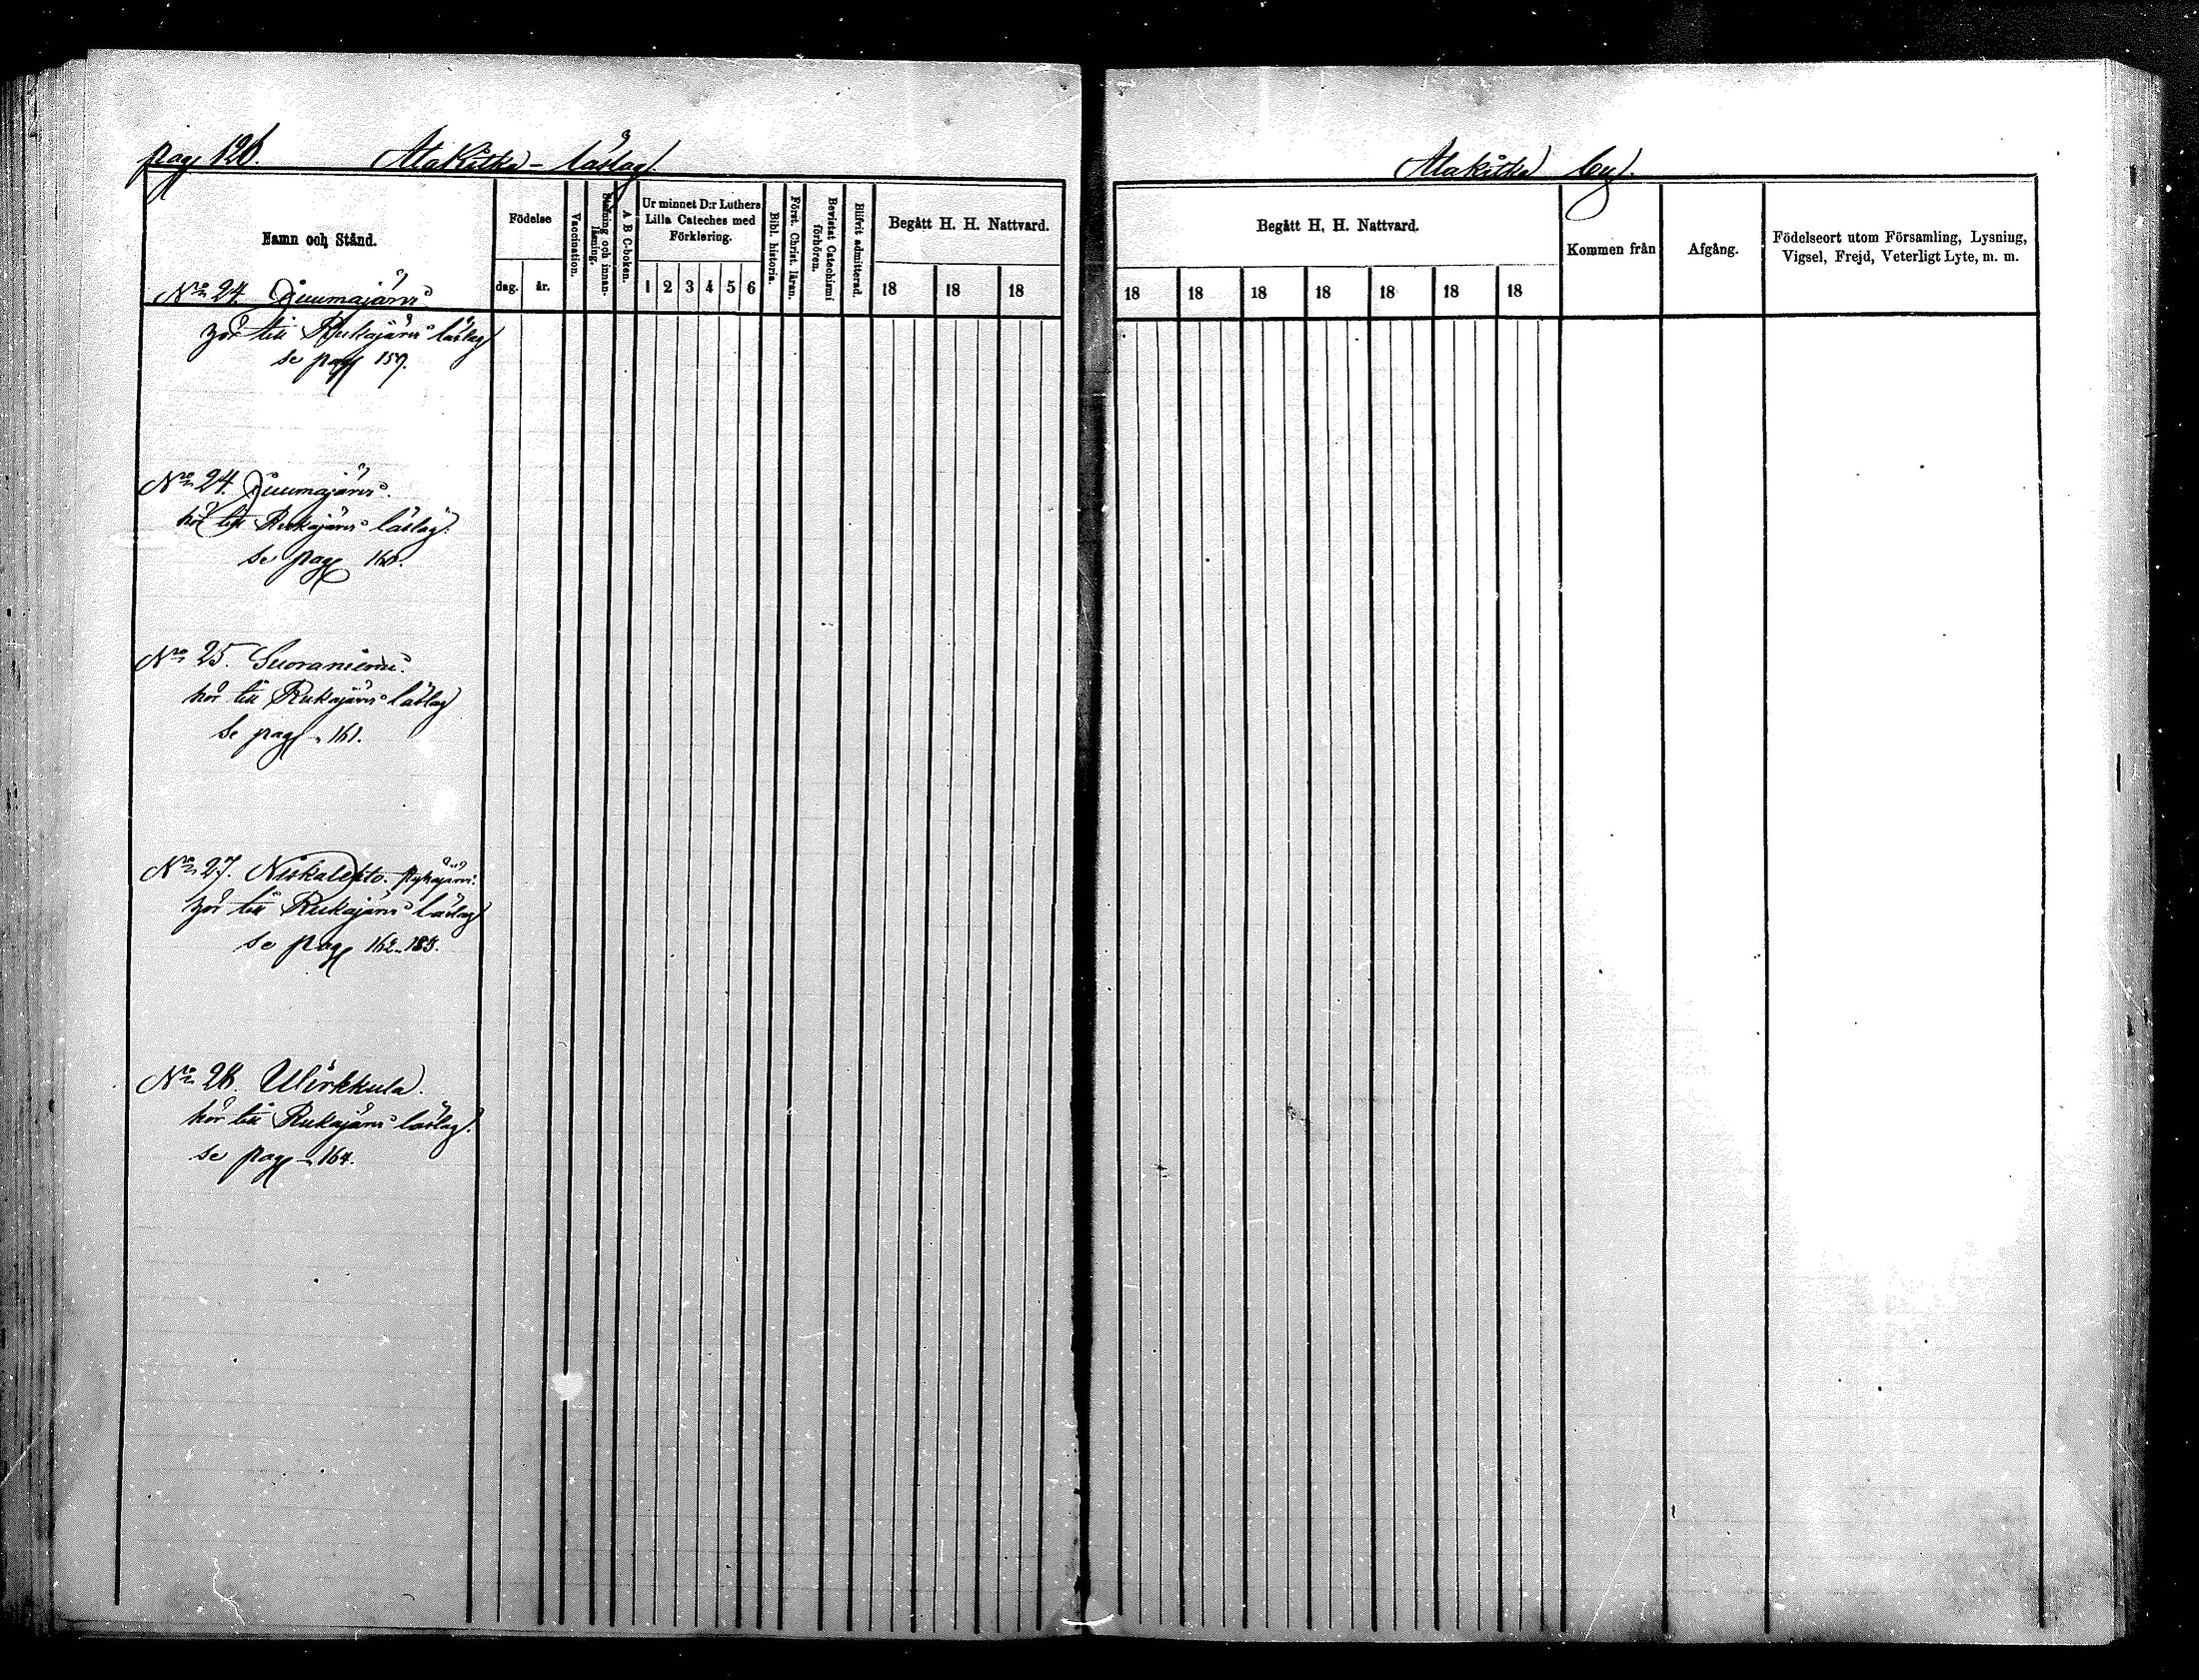 pag 126. Alakitka - läslag.
Alakitka by.
Namn och Stånd.
Födelse
dag. år.
Vaccination.
Stafning och innan-
läsning.
A B C-boken.
Ur minnet D:r Luthers
Lilla Cateches med
Förklaring.
1 2 3 4 5 6
Bibl. historia.
Först. Christ. läran.
Bevistat Catechismi
förhören.
Blifvit admitterad.
Begått H. H. Nattvard.
18 18 18
Begått H. H. Nattvard.
18 18 18 18 18 18 18
Kommen från
Afgång.
Födelseort utom Församling, Lysning,
Vigsel, Frejd, Veterligt Lyte, m. m.
No 24. Juumajärvi
hör till Rukajärvi läslag
se pag 159.
No 24. Juumajärvi.
hör till Rukajärvi läslag.
se pag 160.
No 25. Suoraniemi.
hör till Rukajärvi läslag
se pag. 161.
No 27. Niskalehto.
hör till Rukajärvi läslag
se pag 162-163.
No 28. Wirkkula.
hör till Rukajärvi läslag.
se pag. 164.